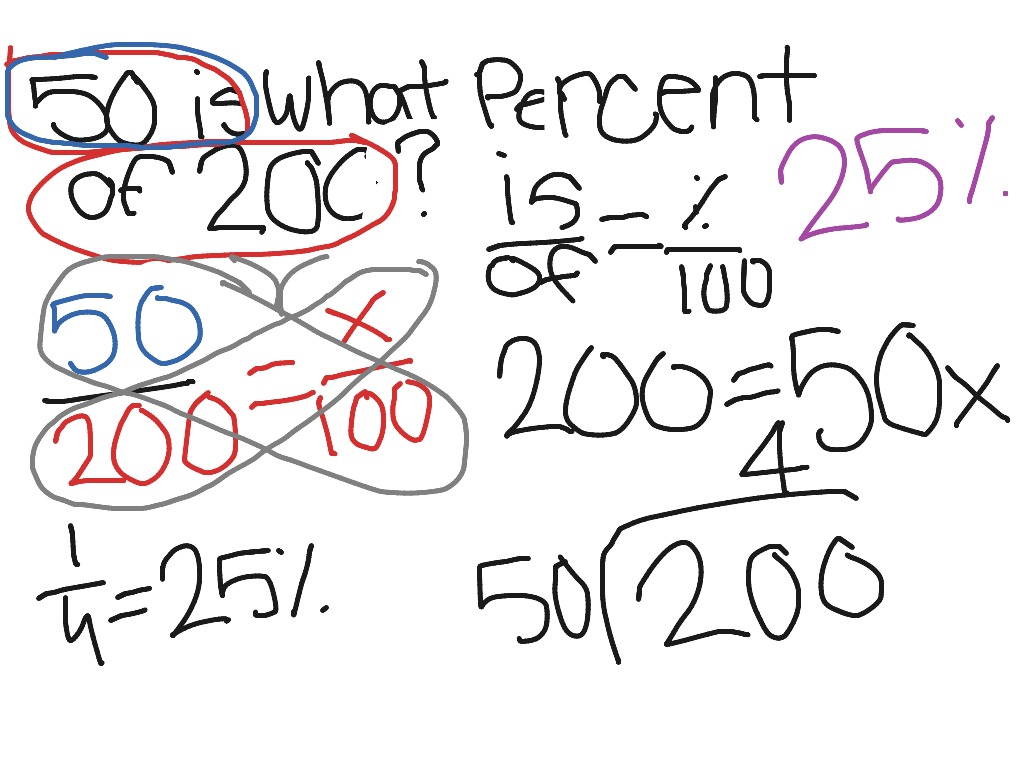 50 is what Percent
of 200?
is/of = %/100
25%
50/200 = x/100
200 = 50x
4
50)200
1/4 = 25%